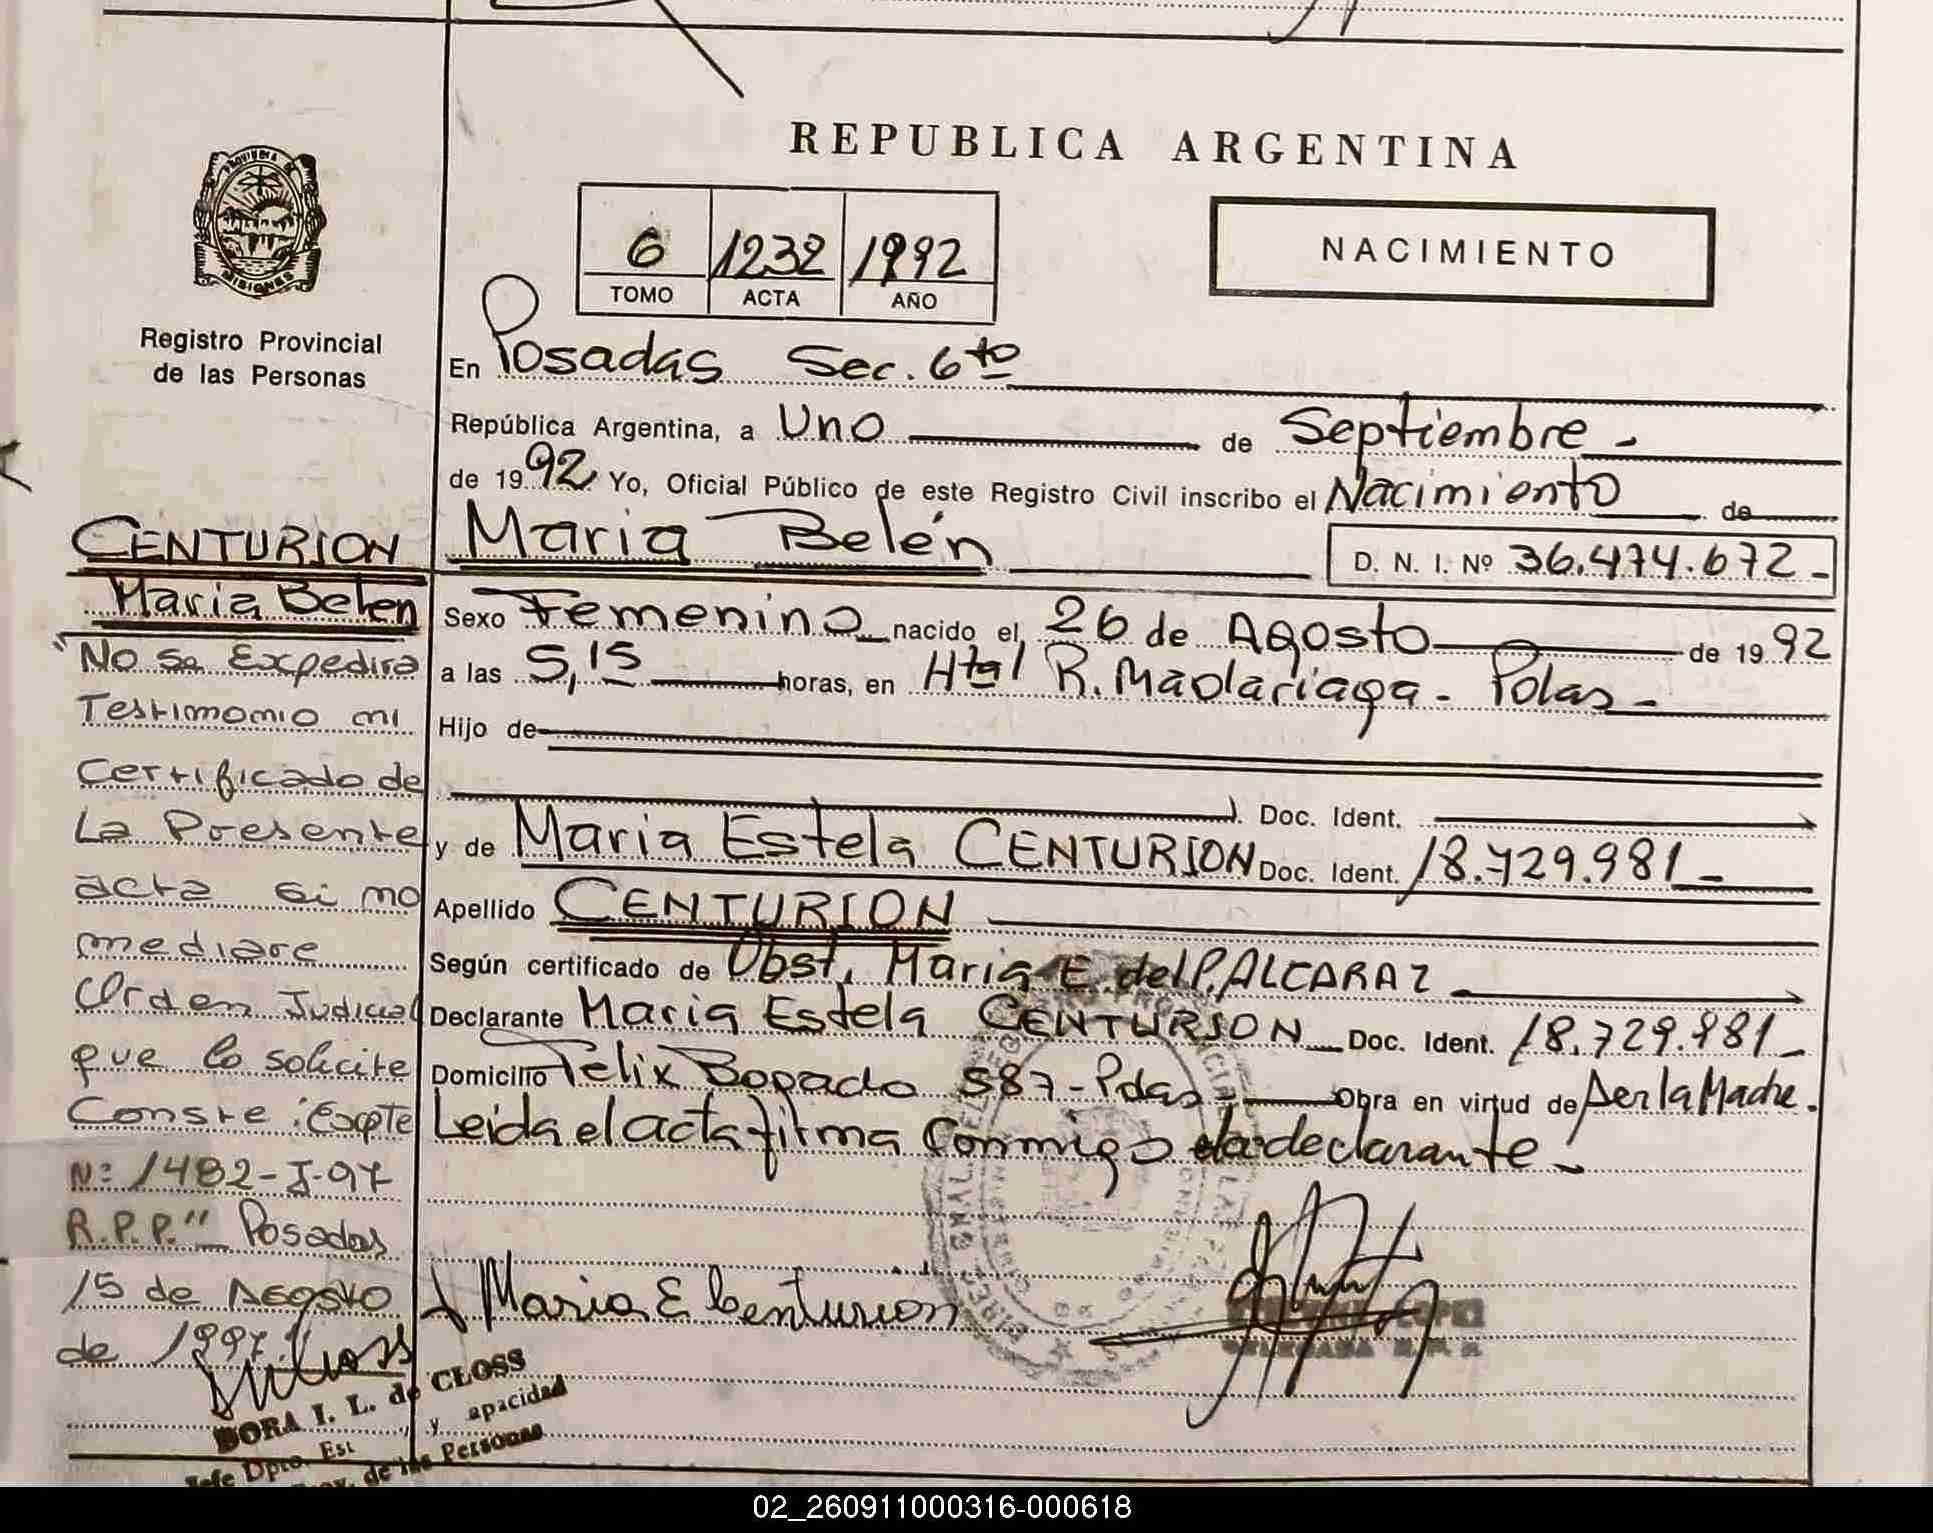 REPUBLICA ARGENTINA
PROVINCIA DE
MISIONES
Registro Provincial
de las Personas
6 1232 1992
TOMO ACTA AÑO
NACIMIENTO
En Posadas Sec. 6to
República Argentina, a Uno de Septiembre -
de 1992 Yo, Oficial Público de este Registro Civil inscribo el Nacimiento de
Maria Belén
D. N. I. Nº 36.474.672 -
Sexo Femenino nacido el 26 de Agosto de 1992
a las 5,15 horas, en Htal R. Madariaga - Pdas -
Hijo de
Doc. Ident.
y de Maria Estela CENTURION Doc. Ident. 18.729.981 -
Apellido CENTURION
Según certificado de Obst, Maria E. del P. ALCARAZ
Declarante Maria Estela CENTURION Doc. Ident. 18.729.981 -
Domicilio Felix Bogado 587 - Pdas - Obra en virtud de Ser la Madre.
Leida el acta firma Conmigo la declarante -
Maria E Centurion
CENTURION
Maria Belen
"No se Expedira
Testimonio ni
Certificado de
La Presente
acta si no
mediare
Orden Judicial
que lo solicite
Conste: Expte
Nº 1482-J-97
R.P.P." Posadas
15 de Agosto
de 1997.
DORA I. L. de CLOSS
Jefe Dpto. Est y apacidad
de las Personas
02_260911000316-000618